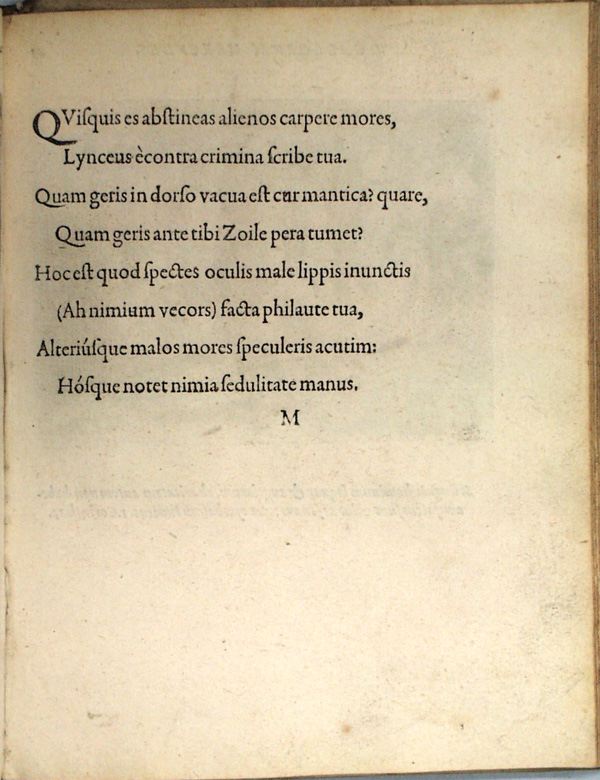 QViſquis es abſtineas alienos carpere mores,
Lynceus ècontra crimina ſcribe tua.
Quam geris in dorſo vacua eſt cur mantica? quare,
Quam geris ante tibi Zoile pera tumet?
Hoc eſt quod ſpectes oculis male lippis inunctis
(Ah nimium vecors) facta philaute tua,
Alteriúſque malos mores ſpeculeris acutim:
Hóſque notet nimia ſedulitate manus.
M